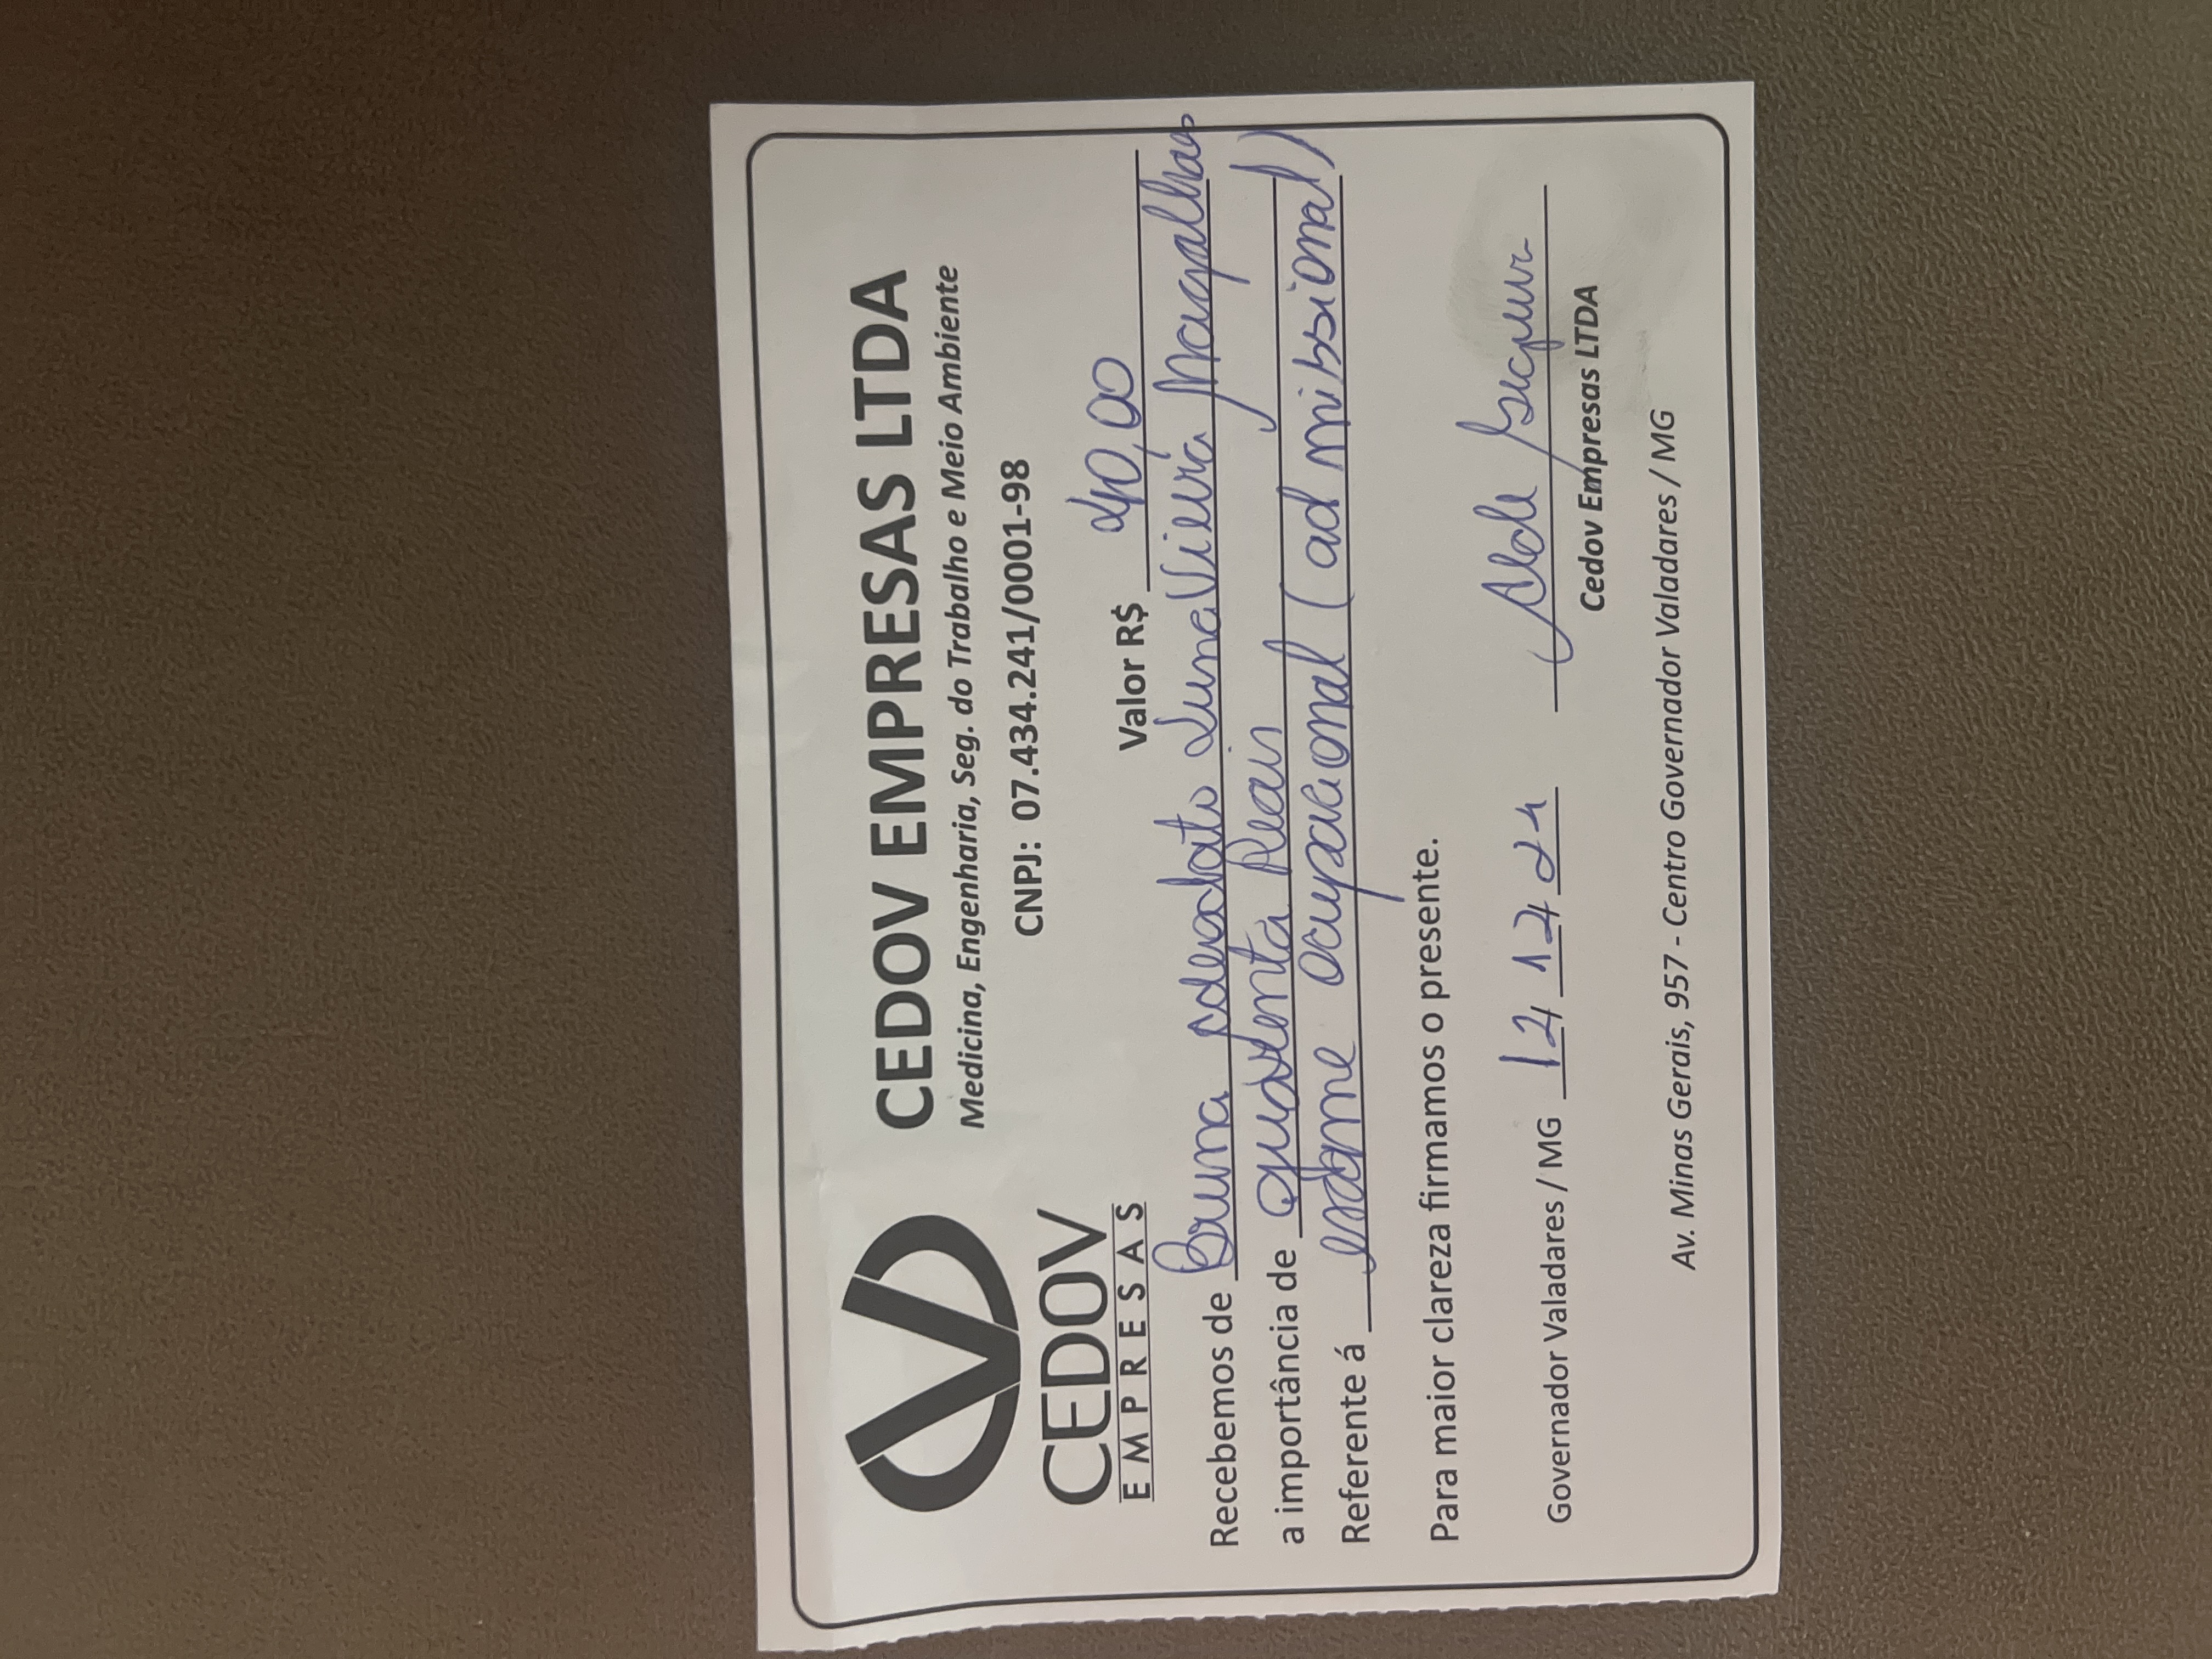 CEDOV EMPRESAS LTDA
Medicina, Engenharia, Seg. do Trabalho e Meio Ambiente
CNPJ: 07.434.241/0001-98
CEDOV
EMPRESAS
Valor R$ 40,00
Recebemos de Bruna Adeodato Luna Vieira Magalhaes
a importância de quarenta Reais
Referente á exame ocupacional (admissional)
Para maior clareza firmamos o presente.
Governador Valadares / MG 12/12/24
Cedov Empresas LTDA
Av. Minas Gerais, 957 - Centro Governador Valadares / MG